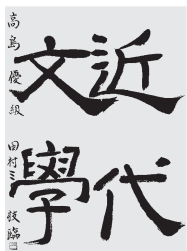 近代
文學
高島優級 田村ミ枝臨